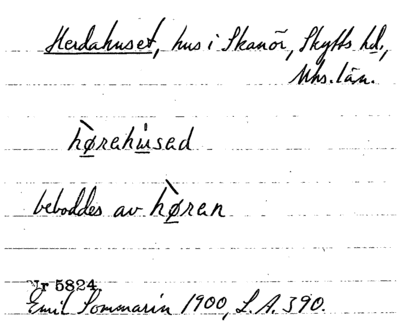 Herdahuset, hus i Skanör, Skytts hd.,
Mhs. län.
hø̀rahu̇sad
beboddes av hø̀ran
Nr 5824
Emil Sommarin 1900, L. A. 390.